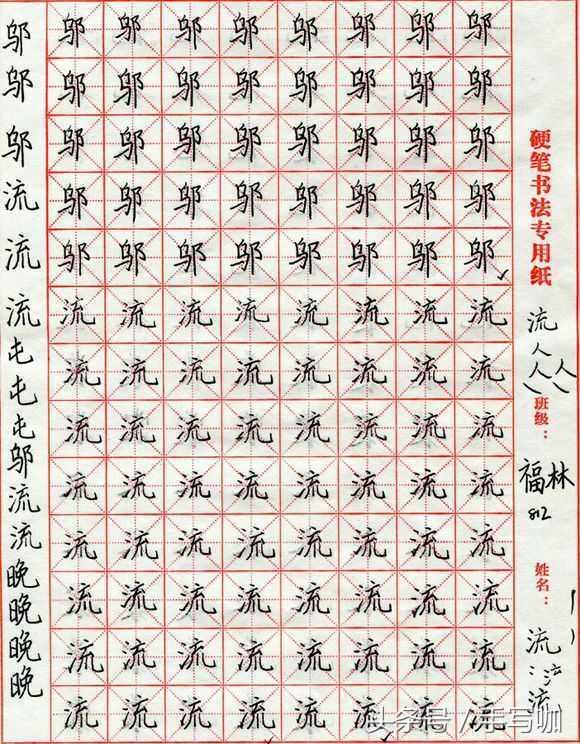 邬
邬
邬
流
流
流
屯
屯
屯
邬
流
流
晚
晚
晚
晚
邬邬邬邬邬邬邬邬
邬邬邬邬邬邬邬邬
邬邬邬邬邬邬邬邬
邬邬邬邬邬邬邬邬
邬邬邬邬邬邬邬邬
流流流流流流流流
流流流流流流流流
流流流流流流流流
流流流流流流流流
流流流流流流流流
流流流流流流流流
流流流流流流流流
流流流流流流流流
硬笔书法专用纸
流
人
人人
班级：
福林
812
姓名：
流
流
头条号 / 手写咖